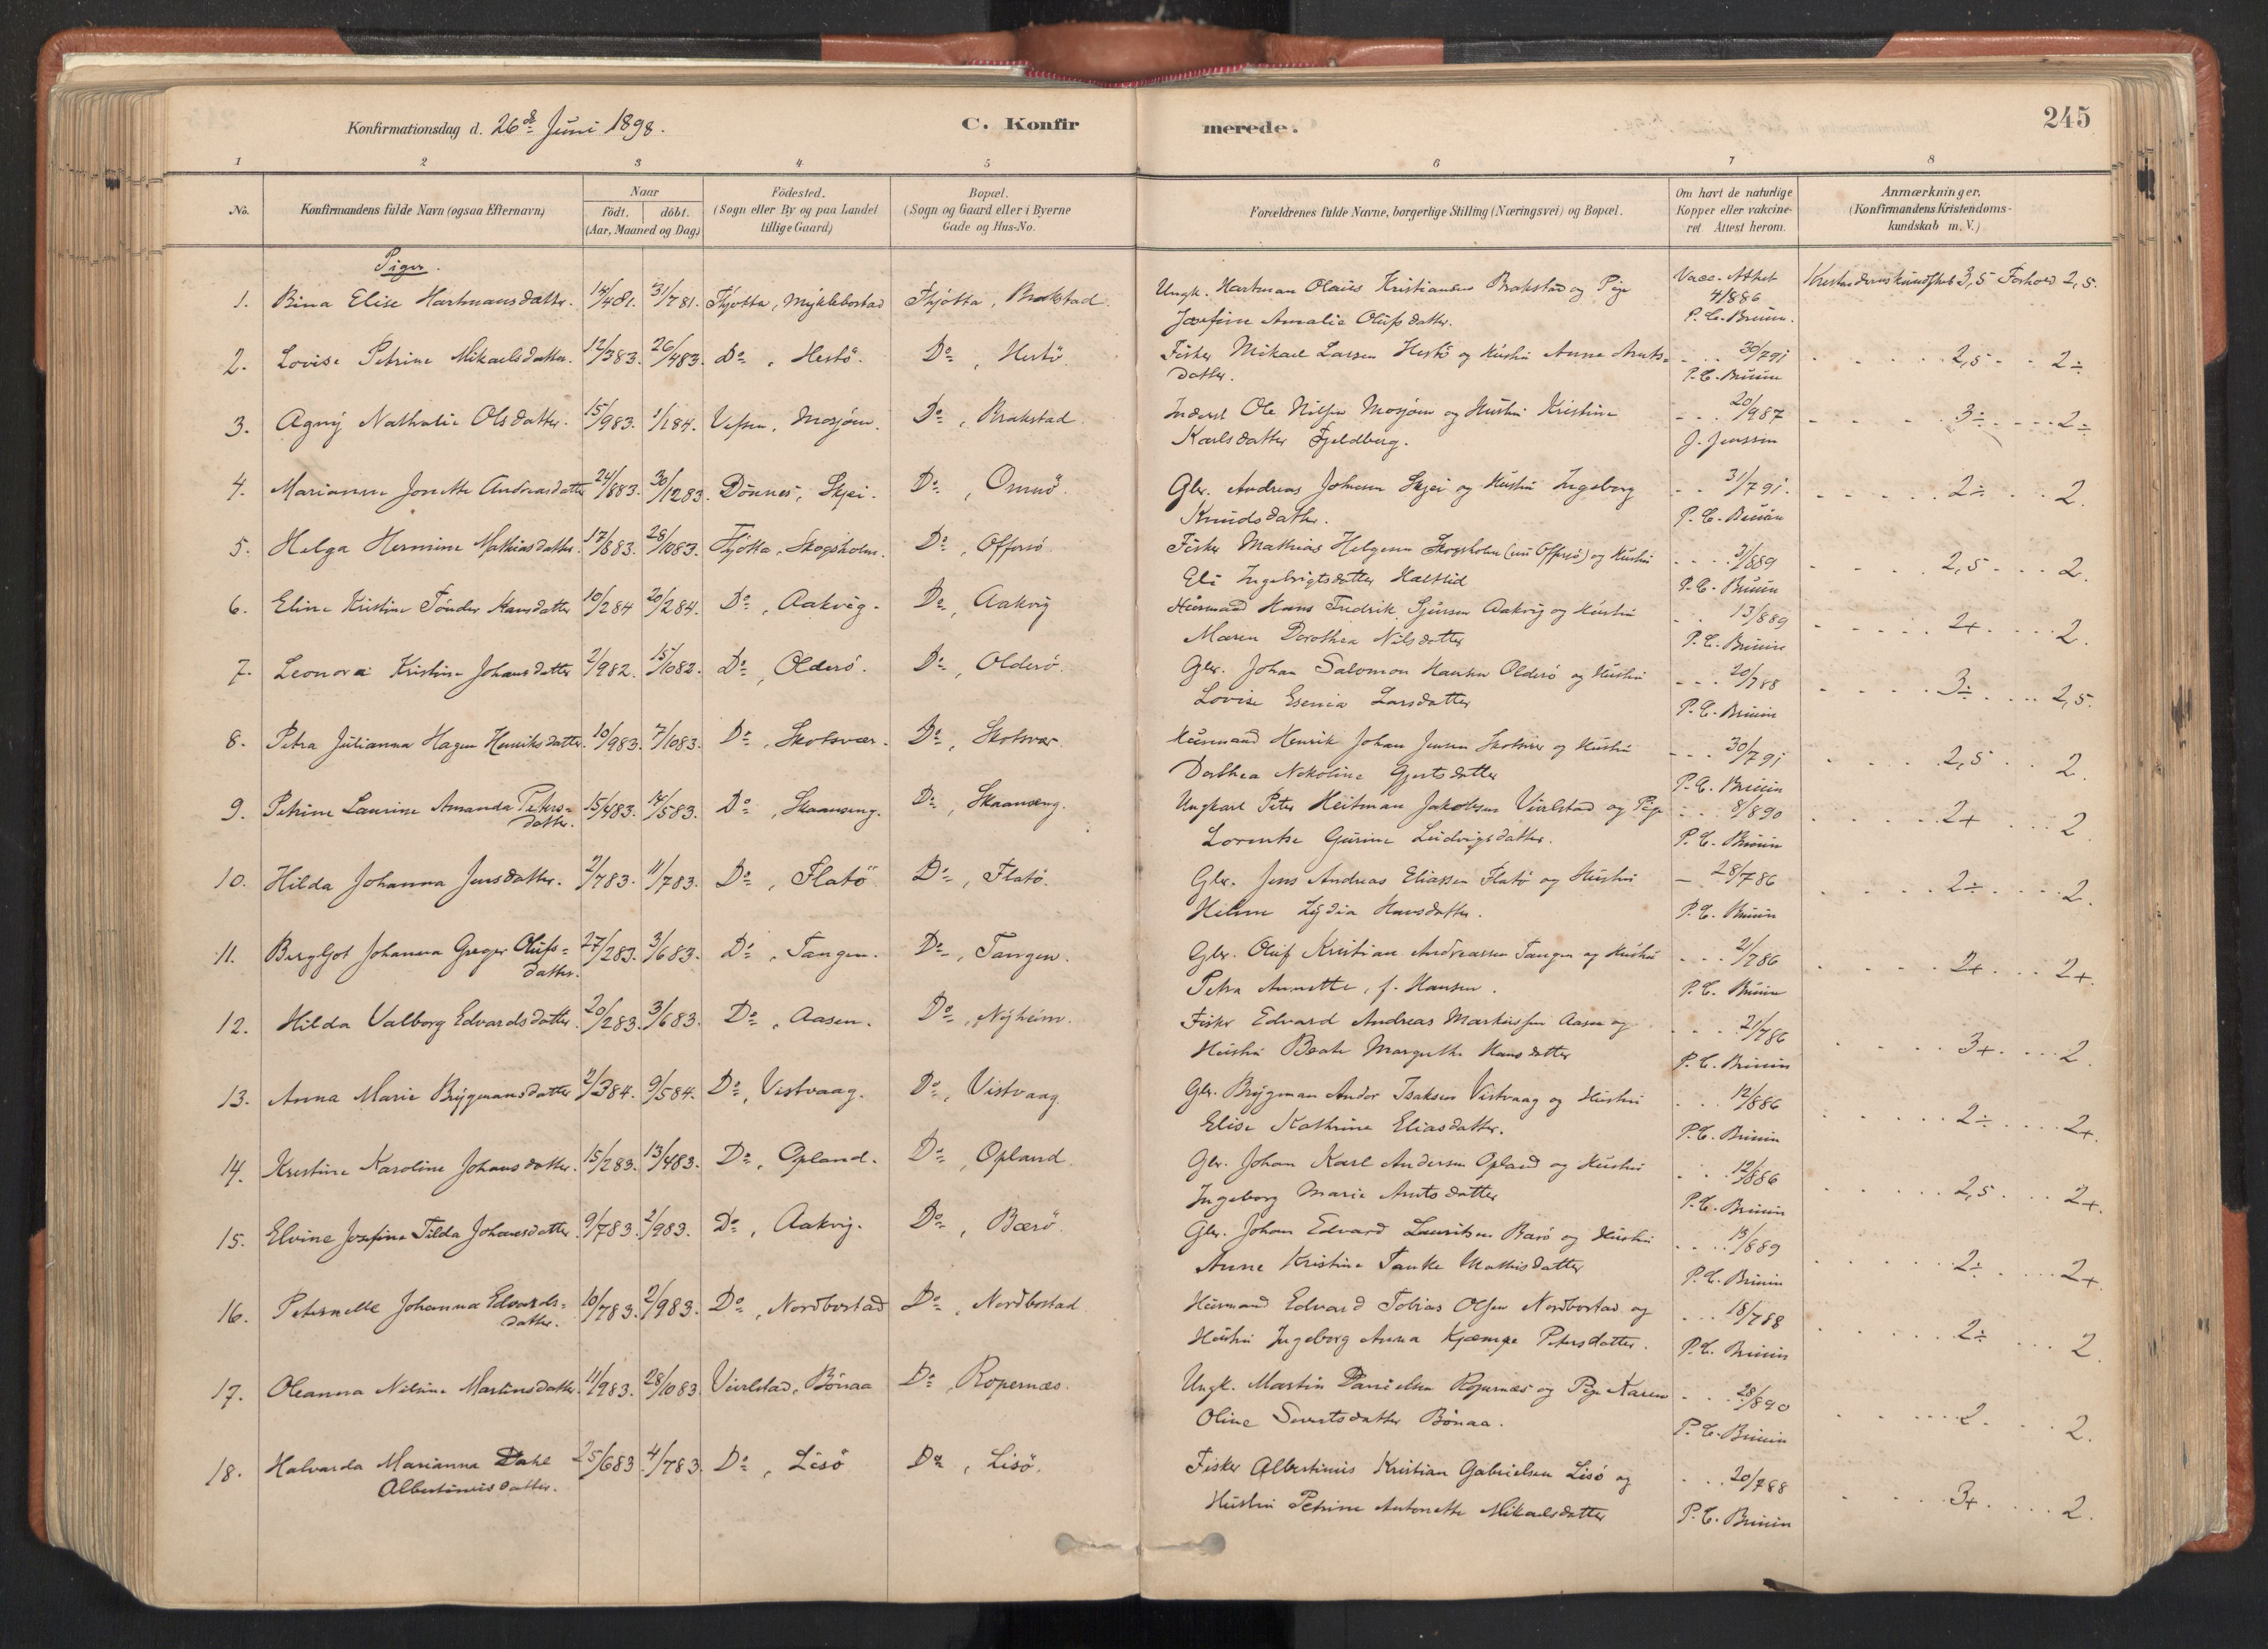 Konfirmationsdag d. 26de Juni 1898.
C. Konfir
merede.
245
1 2 3 4 5 6 7 8
No.
Konfirmandens fulde Navn (ogsaa Efternavn)
Naar
födt. döbt.
(Aar, Maaned og Dag)
Födested.
(Sogn eller By og paa Landet
tillige Gaard)
Bopæl.
(Sogn og Gaard eller i Byerne
Gade og Hus-No.
Forældrenes fulde Navne, borgerlige Stilling (Næringsvei) og Bopæl.
Om havt de naturlige
Kopper eller vakcine-
ret. Attest herom.
Anmærkninger.
(Konfirmandens Kristendoms-
kundskab m. V.)
Piger.
1. Bina Elise Hartmansdatter. 31/781. Thjotta, Myklebostad Thjötta, Brakstad. Ungk. Hartman Olaus Kristiansen Brakstad og Pige Vacc. Attest Kristendomskundskab 3,5 Forhold 2,5.
4/886
Josefine Amalie Olufsdatter. P. C. Bruun.
2. Lovise Petrine Mikaelsdatter. 12/383. 26/483. Do, Hestö. Do, Hestö. Fisker Mikael Larsen Hestö og Hustru Anne Arnts- 30/791 2,5 2÷
datter. P. C. Bruun
3. Agny Nathalie Olsdatter. 15/983. 1/184. Vefsen, Mosjöen. Do, Brakstad. Inderst Ole Nilsen Mosjöen og Hustru Kristine 20/987 3÷ 2÷
Karlsdatter Fjeldberg. J. Jenssen
4. Marianne Jonette Andreasdatter 24/883. 30/1283. Dönnes, Skjei. Do, Omnö. Gbr. Andreas Johnsen Skjei og Hustru Ingeborg 31/791. 2÷ 2.
Knudsdatter. P. C. Bruun
5. Helga Hermine Mathiasdatter. 17/883. 28/1083. Thjötta, Skogsholm. Do, Offersö. Fisker Mathias Helgesen Skogsholm (nu Offersö) og Hustru 31/889 2,5 2.
Eli Ingebrigtsdatter Haltlid P. C. Bruun
6. Eline Kristine Tönder Hansdatter 10/284 20/284. Do, Aakvig. Do, Aakvig Husmand Hans Fredrik Sjursen Aakvig og Hustru 13/889 2+ 2.
Maren Dorothea Nilsdatter P. C. Bruun
7. Leonora Kristine Johansdatter 2/982. 15/1082. Do, Olderö. Do, Olderö. Gbr. Johan Salomon Hansen Olderö og Hustru 20/788 3÷ 2,5.
Lovise Esenia Larsdatter P. C. Bruun
8. Petra Julianna Hagen Henriksdatter. 10/983. 7/1083. Do, Skotsvær. Do, Skotsvær. Husmand Henrik Johan Jensen Skotsvær og Hustru 30/791 2,5 2.
Dorthea Nekoline Gjertsdatter P. C. Bruun
9. Petrine Laurine Amanda Peters- 15/483. 14/583. Do, Skaanseng. Do, Skaanseng. Ungkarl Peter Heitman Jakobsen Vivelstad og Pige 8/890 2+ 2
datter. Lorentse Gurine Ludvigsdatter. P. C. Bruun
10. Hilda Johanna Jensdatter. 2/783. 11/783. Do, Flatö Do, Flatö. Gbr. Jens Andreas Eliassen Flatö og Hustru 28/786 2÷ 2.
Helene Lydia Hansdatter. P. C. Bruun
11. Bergljot Johanna Greger Olufs- 27/283. 3/683. Do, Tangen. Do, Tangen. Gbr. Oluf Kristian Andreassen Tangen og Hustru 21/786 2+ 2+.
datter. Petra Annette, f. Hansen. P. C. Bruun
12. Hilda Valborg Edvardsdatter. 20/283. 3/683. Do, Aasen. Do, Nyheim. Fisker Edvard Andreas Markussen Aasen og 21/786 3+ 2.
Hustru Beate Margrethe Hansdatter P. C. Bruun
13. Anna Marie Brygmansdatter 2/384. 9/584. Do, Vistvaag. Do, Vistvaag. Gbr. Brygman Andor Isaksen Vistvaag og Hustru 12/886 2÷ 2+.
Elise Kathrine Eliasdatter. P. C. Bruun
14. Kristine Karoline Johansdatter. 15/283. 13/483. Do, Opland. Do, Opland. Gbr. Johan Karl Andersen Opland og Hustru 12/886 2,5 2+.
Ingeborg Marie Arntsdatter P. C. Bruun
15. Elvine Josefine Tilda Johansdatter. 9/783. 2/983. Do, Aakvig. Do, Bærö. Gbr. Johan Edvard Lauritsen Bærö og Hustru 13/889 2÷ 2+
Anne Kristine Tanke Mathisdatter P. C. Bruun
16. Peternelle Johanna Edvards- 10/783. 2/983. Do, Nordbostad Do, Nordbostad Husmand Edvard Tobias Olsen Nordbostad og 18/788 2÷ 2.
datter. Hustru Ingeborg Anna Kjæmpe Petersdatter. P. C. Bruun
17. Oleanna Nilsine Martinsdatter. 11/983. 28/1083 Vivelstad, Bönaa Do, Ropernæs. Ungk. Martin Danielsen Ropernæs og Pige Karen 28/890 2. 2.
Oline Sivertsdatter Bönaa. P. C. Bruun
18. Halvarda Marianna Dahl 25/683 4/783. Do, Lisö Do, Lisö. Fisker Albertinius Kristian Gabrielsen Lisö og 20/788 3+ 2.
Albertiniusdatter. Hustru Petrine Antonette Mikaelsdatter P. C. Bruun